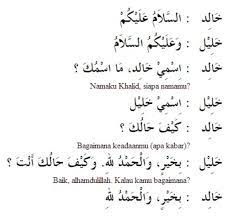 خَالِد : السَّلَامُ عَلَيْكُمْ
خَلِيْل : وَعَلَيْكُمُ السَّلَامُ
خَالِد : اِسْمِيْ خَالِد، مَا اسْمُكَ ؟
Namaku Khalid, siapa namamu?
خَلِيْل : اِسْمِيْ خَلِيْل
خَالِد : كَيْفَ حَالُكَ ؟
Bagaimana keadaanmu (apa kabar)?
خَلِيْل : بِخَيْرٍ، وَالْحَمْدُ لِلّٰهِ. وَكَيْفَ حَالُكَ أَنْتَ ؟
Baik, alhamdulillah. Kalau kamu bagaimana?
خَالِد : بِخَيْرٍ، وَالْحَمْدُ لِلّٰهِ